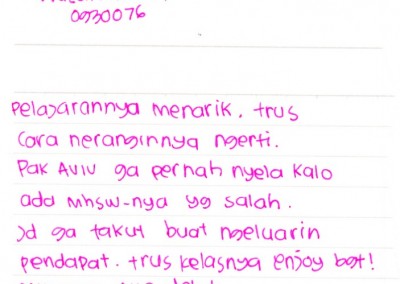 0930076
pelajarannya menarik. trus
Cara neranginnya ngerti.
Pak Aviv ga pernah nyela kalo
ada Mhsw-nya yg salah.
Jd ga takut buat ngeluarin
pendapat. trus kelasnya enjoy bgt!